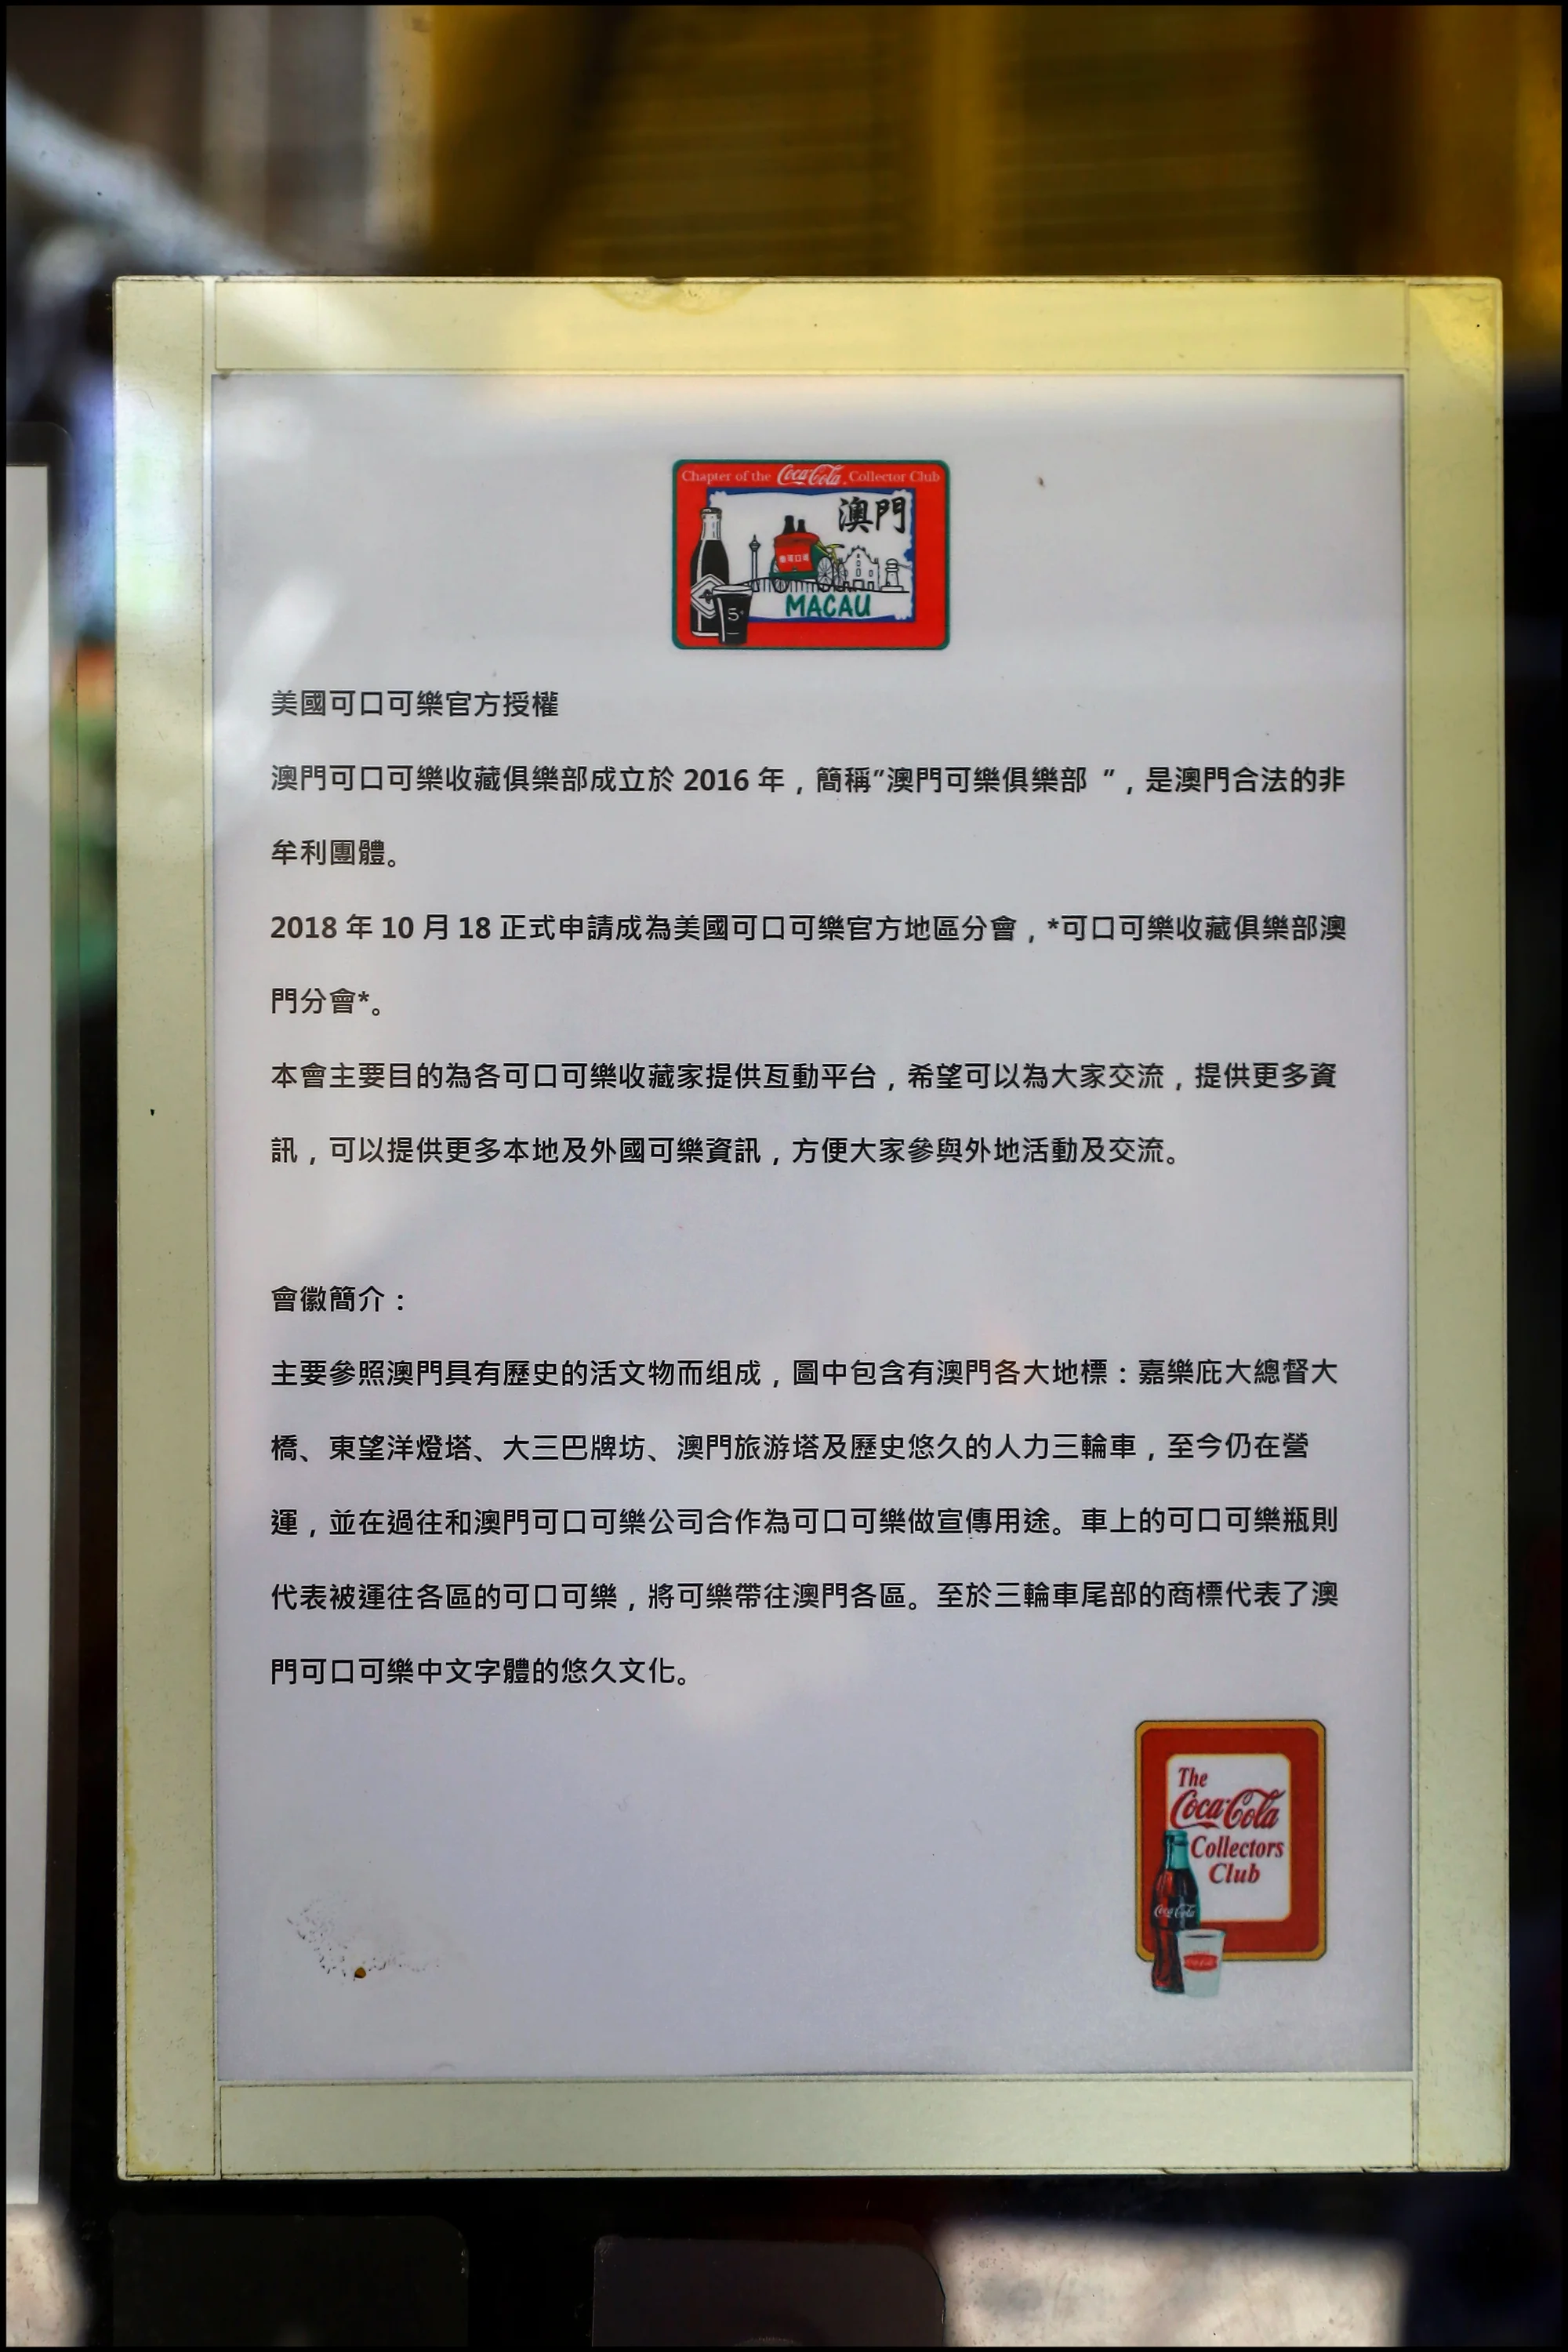 Chapter of the Coca-Cola Collector Club
澳門
MACAU
5¢
美國可口可樂官方授權
澳門可口可樂收藏俱樂部成立於 2016 年，簡稱"澳門可樂俱樂部 "，是澳門合法的非
牟利團體。
2018 年 10 月 18 正式申請成為美國可口可樂官方地區分會，*可口可樂收藏俱樂部澳
門分會*。
本會主要目的為各可口可樂收藏家提供互動平台，希望可以為大家交流，提供更多資
訊，可以提供更多本地及外國可樂資訊，方便大家參與外地活動及交流。
會徽簡介：
主要參照澳門具有歷史的活文物而组成，圖中包含有澳門各大地標：嘉樂庇大總督大
橋、東望洋燈塔、大三巴牌坊、澳門旅游塔及歷史悠久的人力三輪車，至今仍在營
運，並在過往和澳門可口可樂公司合作為可口可樂做宣傳用途。車上的可口可樂瓶則
代表被運往各區的可口可樂，將可樂帶往澳門各區。至於三輪車尾部的商標代表了澳
門可口可樂中文字體的悠久文化。
The
Coca-Cola
Collectors
Club
Coca-Cola